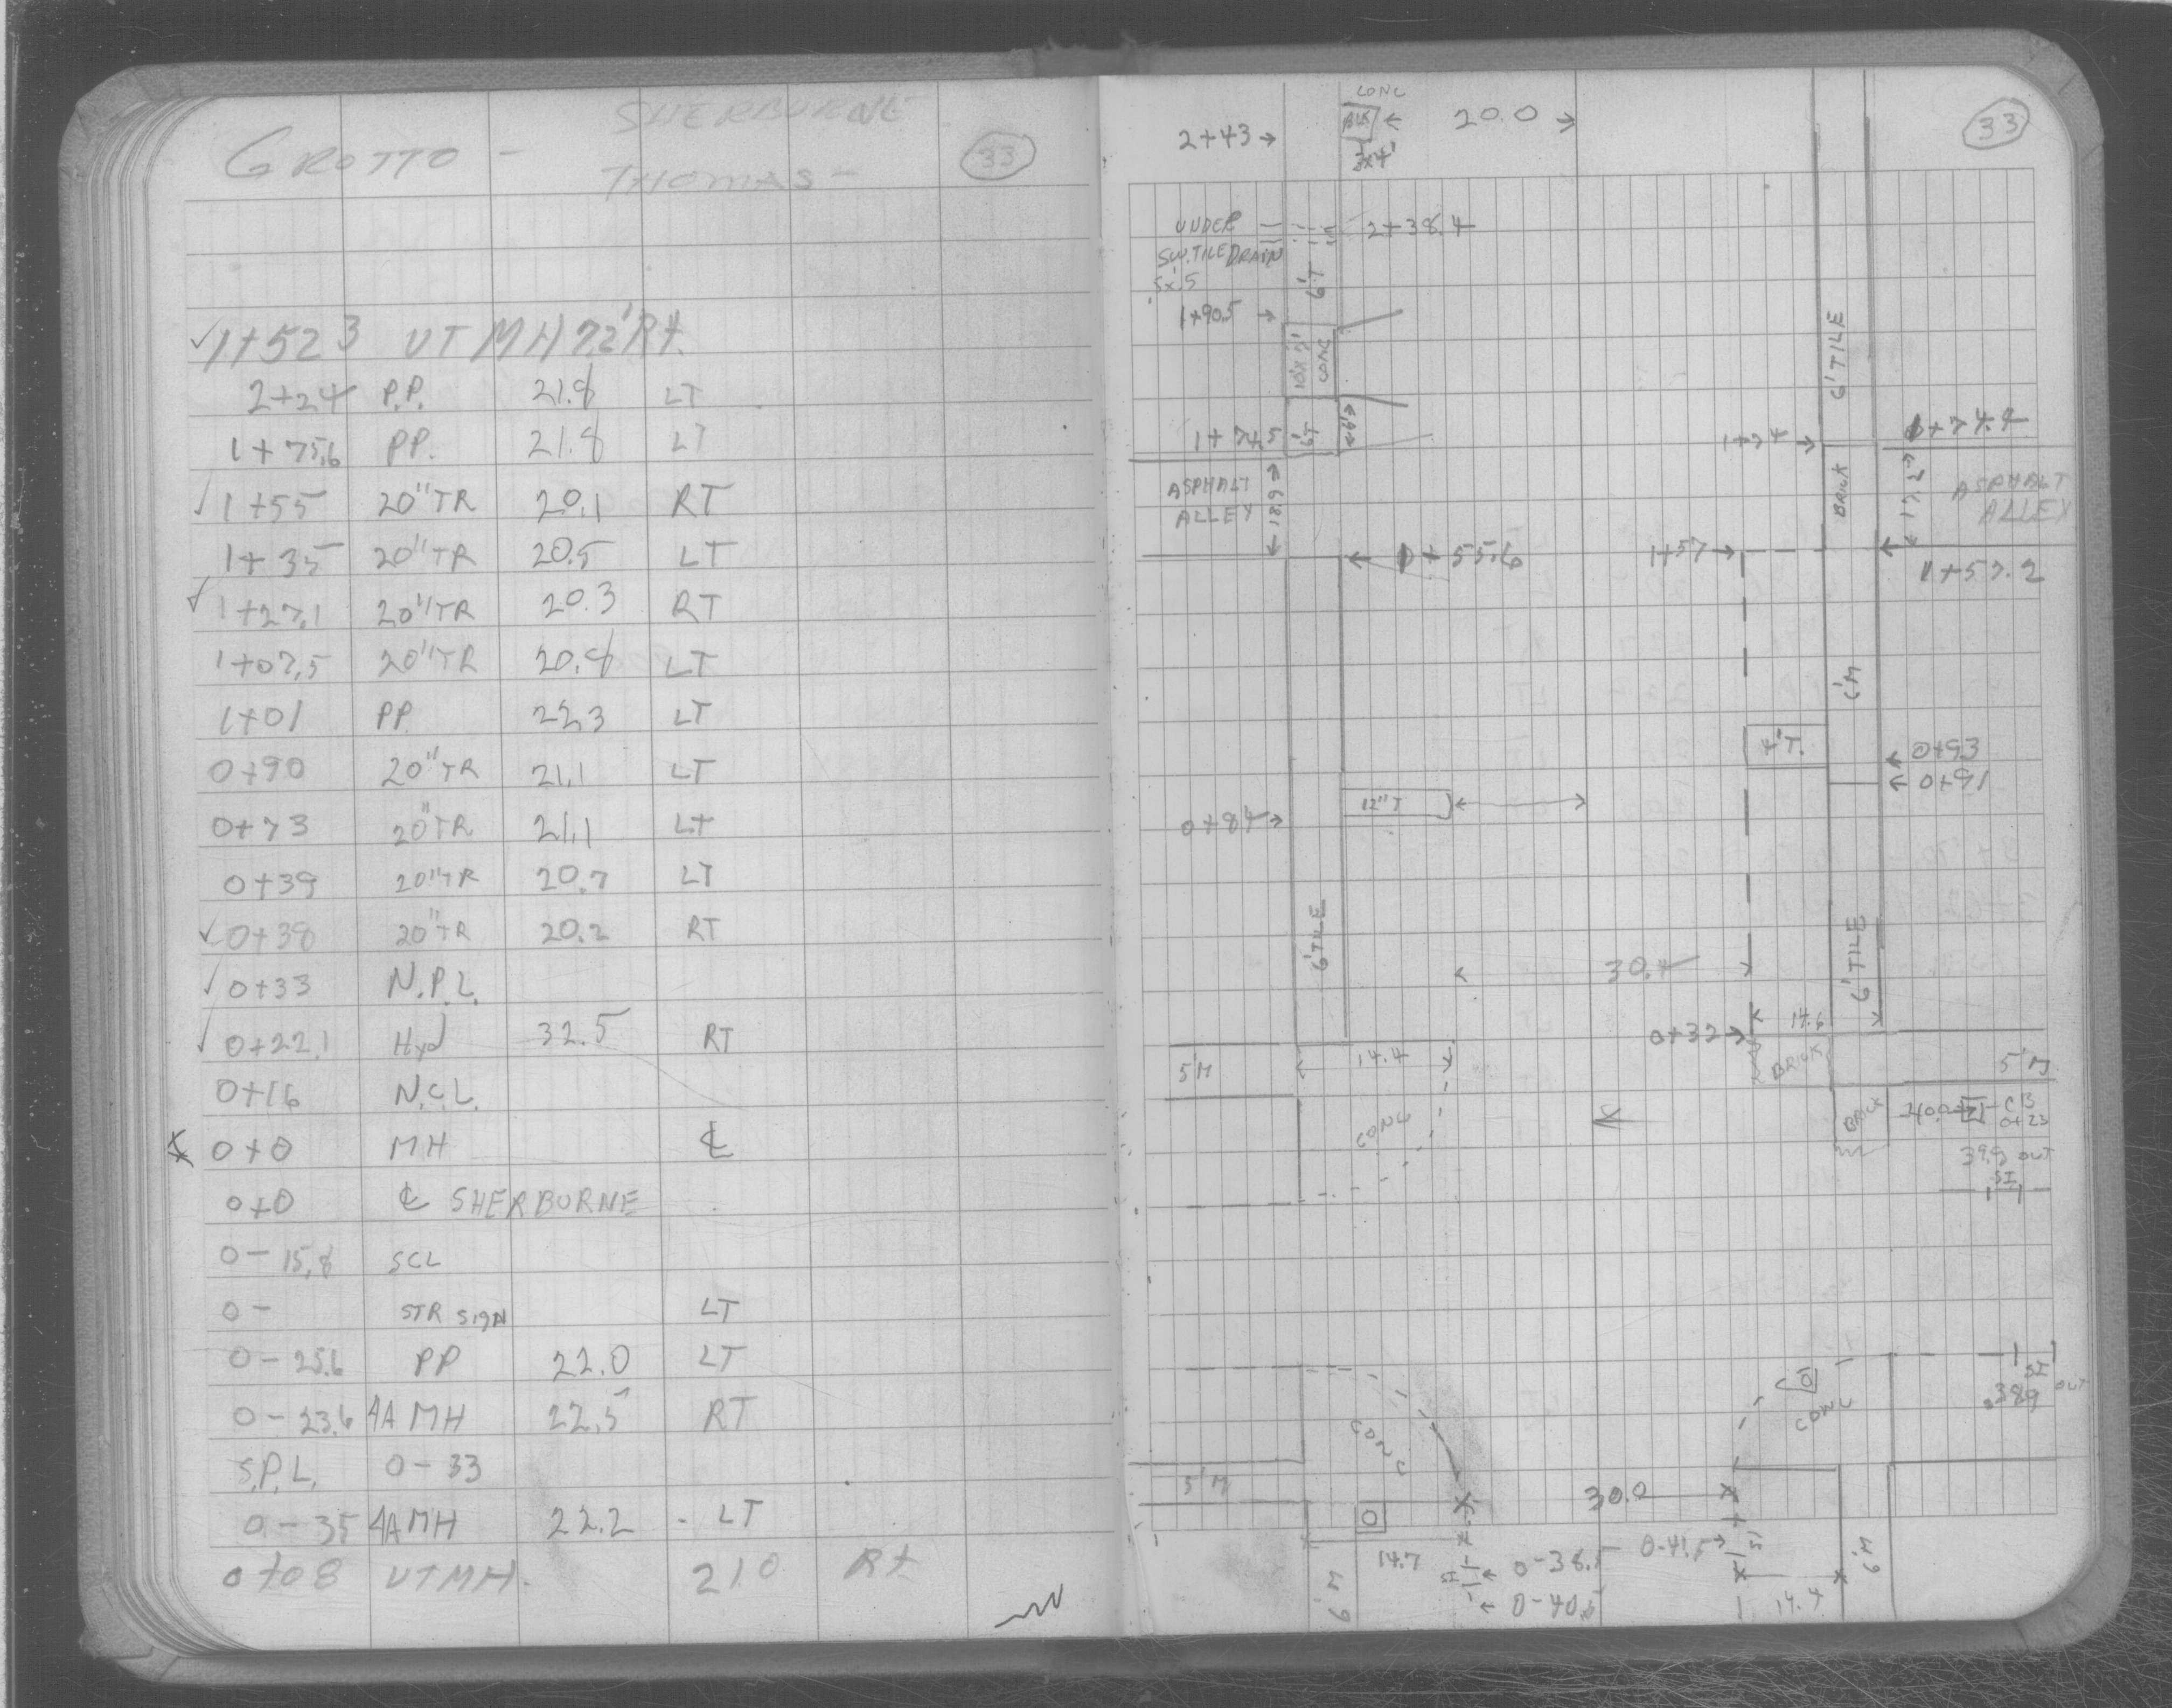 GROTTO - SHERBURNE
THOMAS -
33
✓ 1+52 3 UT MH 22' Rt.
2+24 P.P. 21.8 LT
1+75.6 PP. 21.8 LT
✓ 1+55 20" TR 20.1 RT
1+35 20" TR 20.5 LT
✓ 1+27.1 20" TR 20.3 RT
1+07.5 20" TR 20.8 LT
1+01 PP 22.3 LT
0+90 20" TR 21.1 LT
0+73 20" TR 21.1 LT
0+39 20" TR 20.7 LT
✓ 0+38 20" TR 20.2 RT
✓ 0+33 N.P.L.
✓ 0+22.1 Hyd 32.5 RT
0+16 N.C.L.
0+0 MH ℄
0+0 ℄ SHERBURNE
0-15.8 SCL
0- STR SIGN LT
0-25.6 PP 22.0 LT
0-23.6 4A MH 22.5 RT
S.P.L. 0-33
0-35 4A MH 22.2 - LT
0+08 UTMH. 21.0 Rt
CONC
2+43 → BLK ← 20.0 →
3'x4'
33
UNDER 2+38.4
SW. TILE DRAIN
.5x.5
6'T
1+90.5 →
CONC
6' TILE
1+74.5 6'T 1+74 → 1+74.4
ASPHALT
ALLEY
18.9
BRICK
17.2
ASPHALT
ALLEY
← 1+55.6 1+57 → ← 1+57.2
6'M
4'T. ← 0+93
← 0+91
12" T
0+84 →
6' TILE
6' TILE
30.4
0+32 → 14.6
5'M 14.4 BRICK 5'M
CONC BRICK 40.0 CB
0+23
39.9 OUT
SI
SI
38.9 OUT
CONC CONC
5'M
30.0
14.7 0-38.5 0-41.5 → SI
SI ← 0-40.5
6'M 14.4 6'M